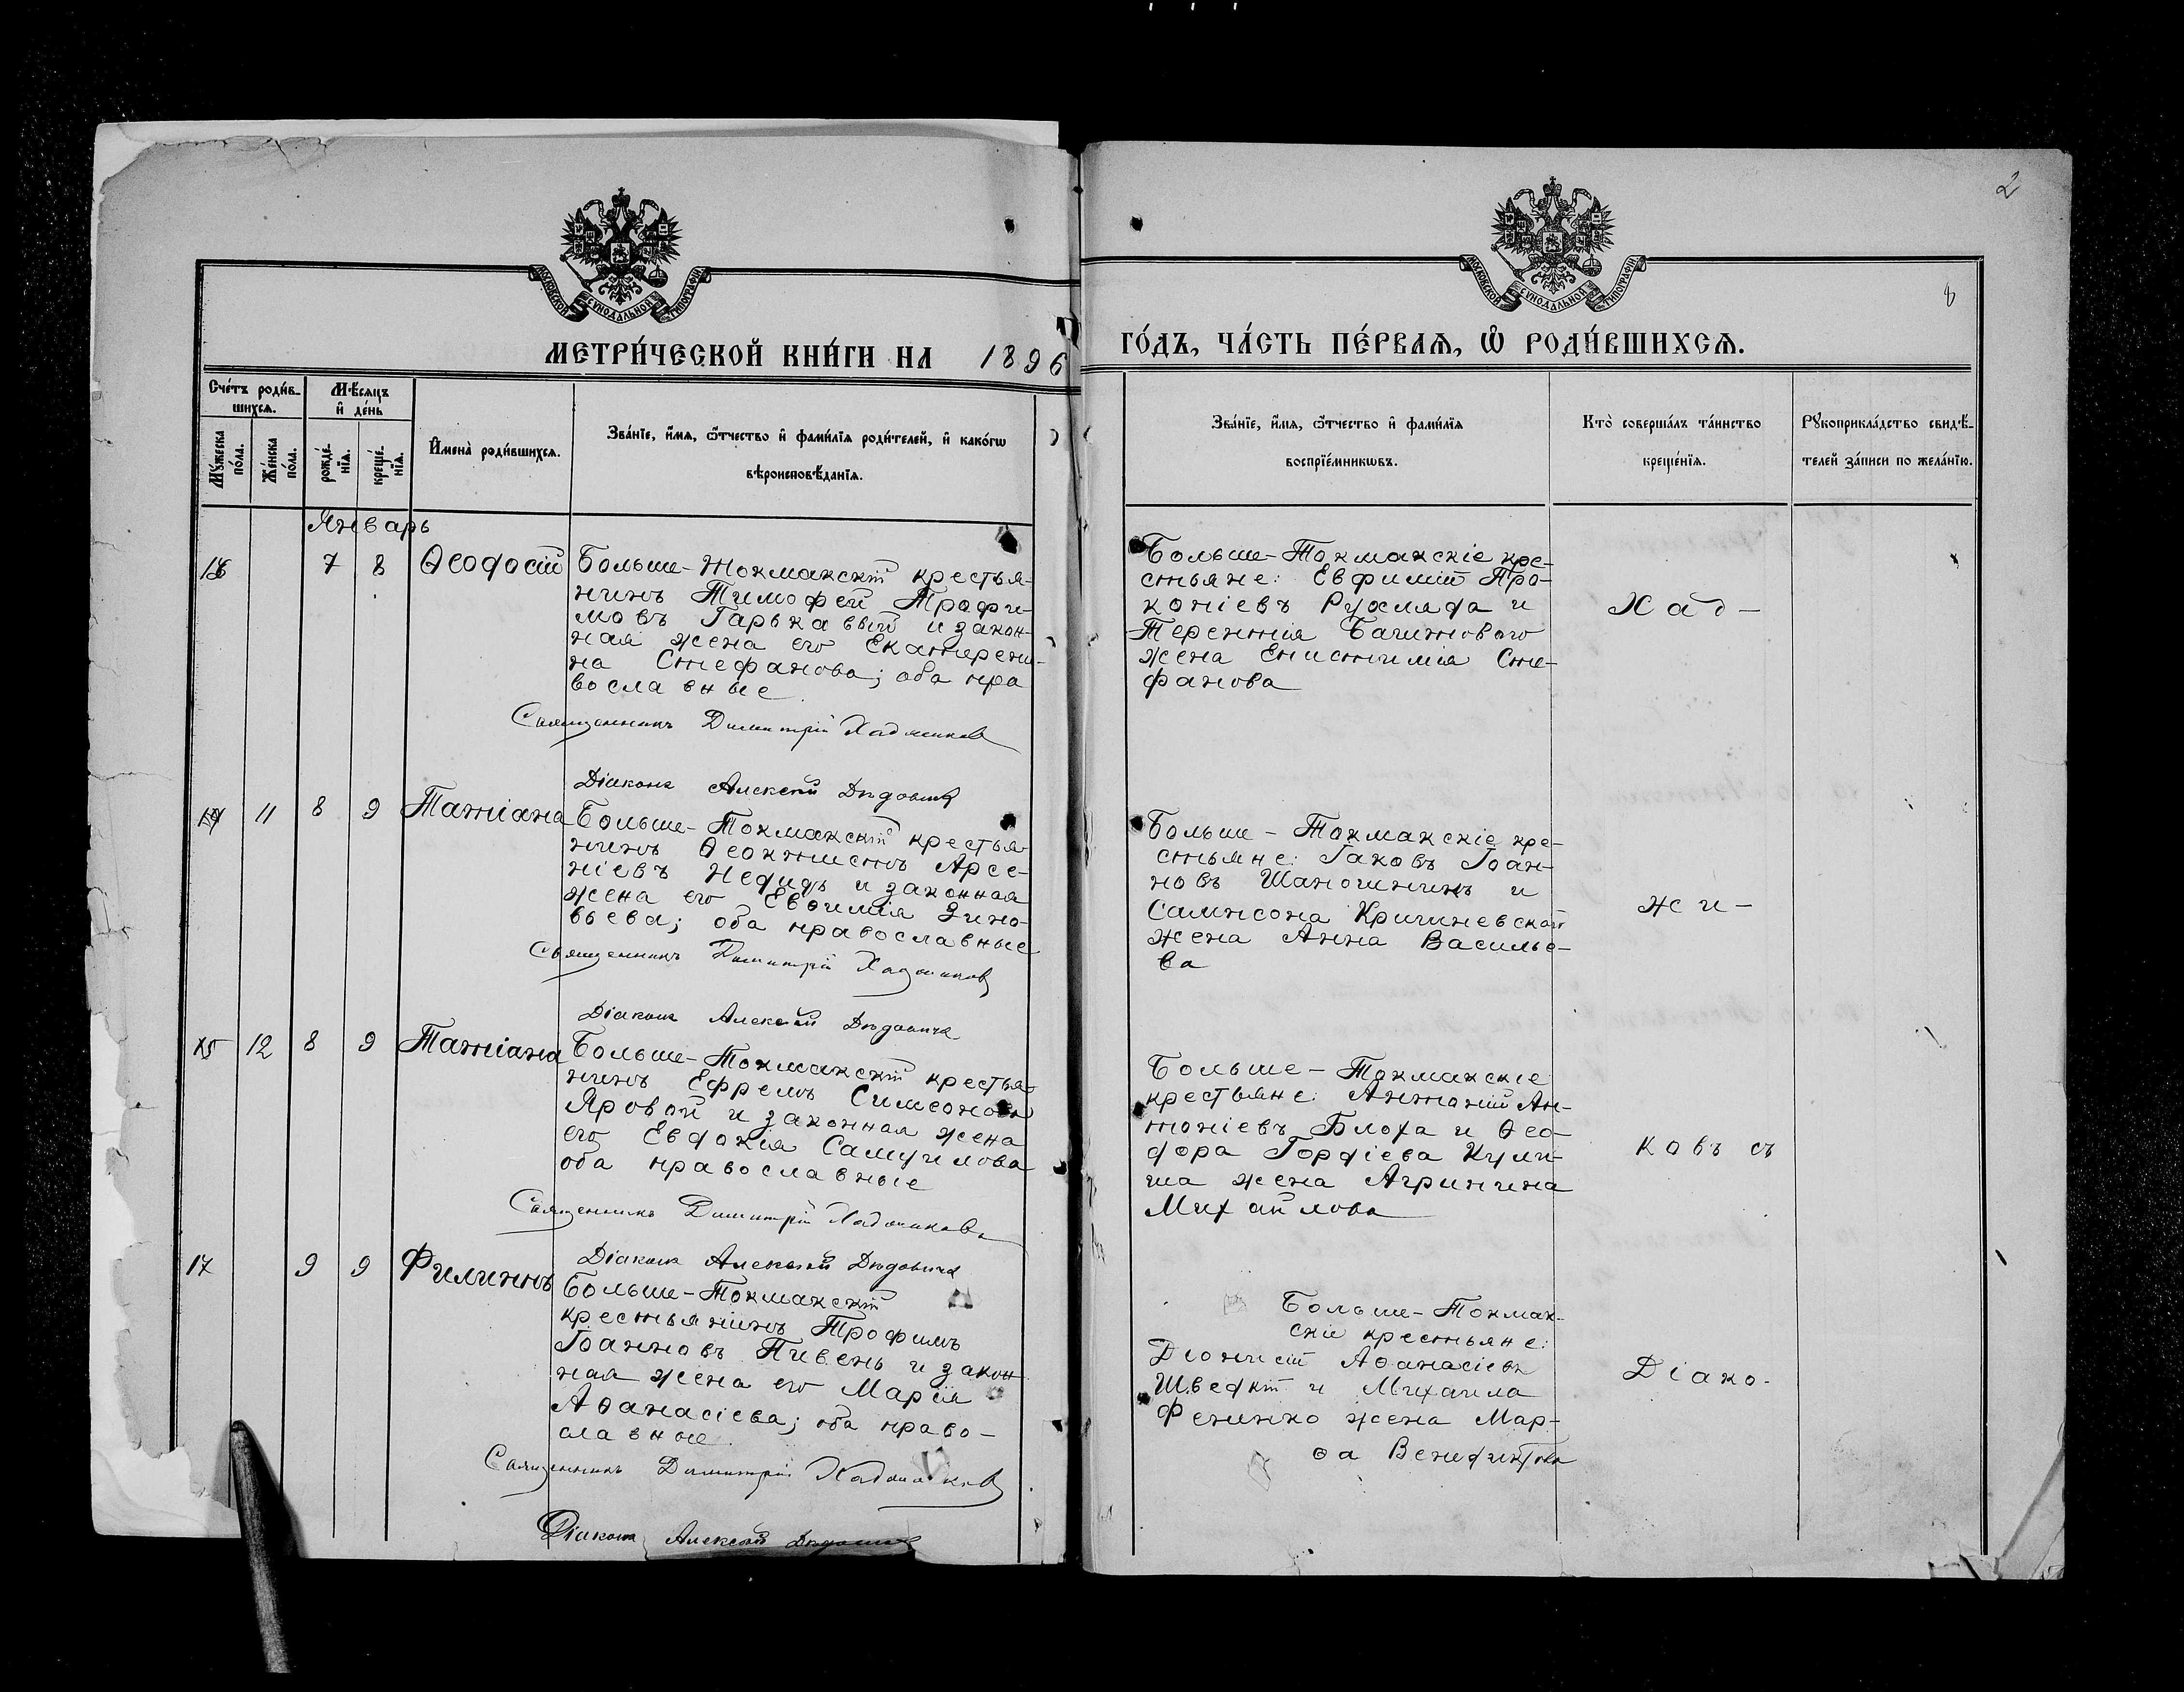 2
8
МОСКОВСКОЙ СѴНОДАЛЬНОЙ ТИПОГРАФІИ
МОСКОВСКОЙ СѴНОДАЛЬНОЙ ТИПОГРАФІИ
МЕТРИ́ЧЕСКОЙ КНИ́ГИ НА 1896
ГО́ДЪ, ЧА́СТЬ ПЕ́РВАѦ, Ѡ҆ РОДИ́ВШИХСѦ.
Сче́тъ роди́в-
шихсѧ.
Мѣ́сѧцъ
и҆ де́нь
Мꙋ́жеска по́ла.
Же́нска по́ла.
рожде́-нїѧ.
креще́-нїѧ.
И҆мена̀ роди́вшихсѧ.
Зва́нїе, и҆́мѧ, ѻ҆́тчество и҆ фами́лїѧ роди́телей, и҆ како́гѡ
вѣроисповѣ́данїѧ.
Зва́нїе, и҆́мѧ, ѻ҆́тчество и҆ фами́лїѧ
воспрїе́мникѡвъ.
Кто̀ соверша́лъ та́инство
креще́нїѧ.
Рꙋкоприкла́дство свидѣ́-
телей за́писи по жела́нїю.
Январь
16 7 8 Ѳеодосій
Больше-Токмакскій крестья-
нинъ Тимофей Трофи-
мовъ Гарькавый и закон-
ная жена его Екатерени-
на Стефанова; оба пра
вославные
Священникъ Димитрій Хаджиковъ
Діаконъ Алексѣй
Больше-Токмакскіе кре-
стьяне: Евфимій Про-
копіевъ Рухляда и
Терентія Багинового
жена Епистимія Сте-
фанова
Хад-
11 8 9 Татіана
Больше-Токмакскій крестья-
нинъ Ѳеоктистъ Арсе-
ніевъ и законная
жена его Евѳимія Зино-
вьева; оба православные
Священникъ Димитрій Хаджиковъ
Діаконъ Алексѣй
Больше-Токмакскіе кре-
стьяне: Іаковъ Іоан-
новъ и
Сампсона
жена Анна Василье-
ва
жи-
15 12 8 9 Татіана
Больше-Токмакскій крестья-
нинъ Ефремъ Симеоновъ
Яровой и законная жена
его Евдокія Самуилова
оба православные
Священникъ Димитрій Хаджиковъ
Діаконъ Алексѣй
Больше-Токмакскіе
крестьяне: Антоній Ан-
тоніевъ Блоха и Ѳео-
дора Гордіева Кули-
ша жена Агрипина
Михайлова
ковъ съ
17 9 9 Филиппъ
Больше-Токмакскій
крестьянинъ Трофимъ
Іоанновъ Пивень и закон
ная жена его Марія
Аѳанасіева; оба право-
славные
Священникъ Димитрій Хаджиковъ
Діаконъ Алексѣй
Больше-Токмак-
скіе крестьяне:
Діонисій Аѳанасіевъ
Шведкій и Михаила
Фенинко жена Мар-
ѳа Венидиктова
Діако-